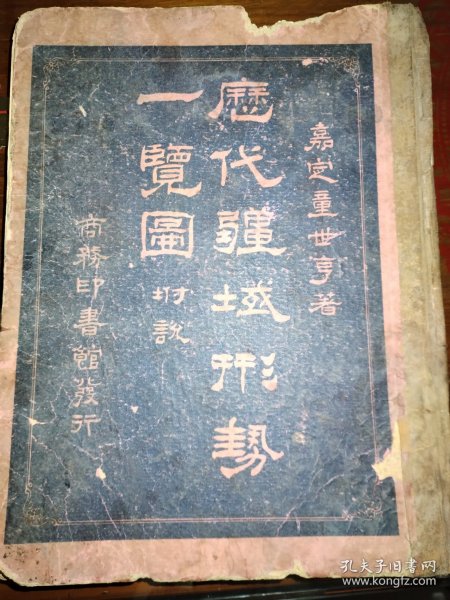 嘉定童世亨著
歷代疆域形勢
一覽圖 坿說
商務印書館發行
孔夫子旧书网
www.kongfz.com